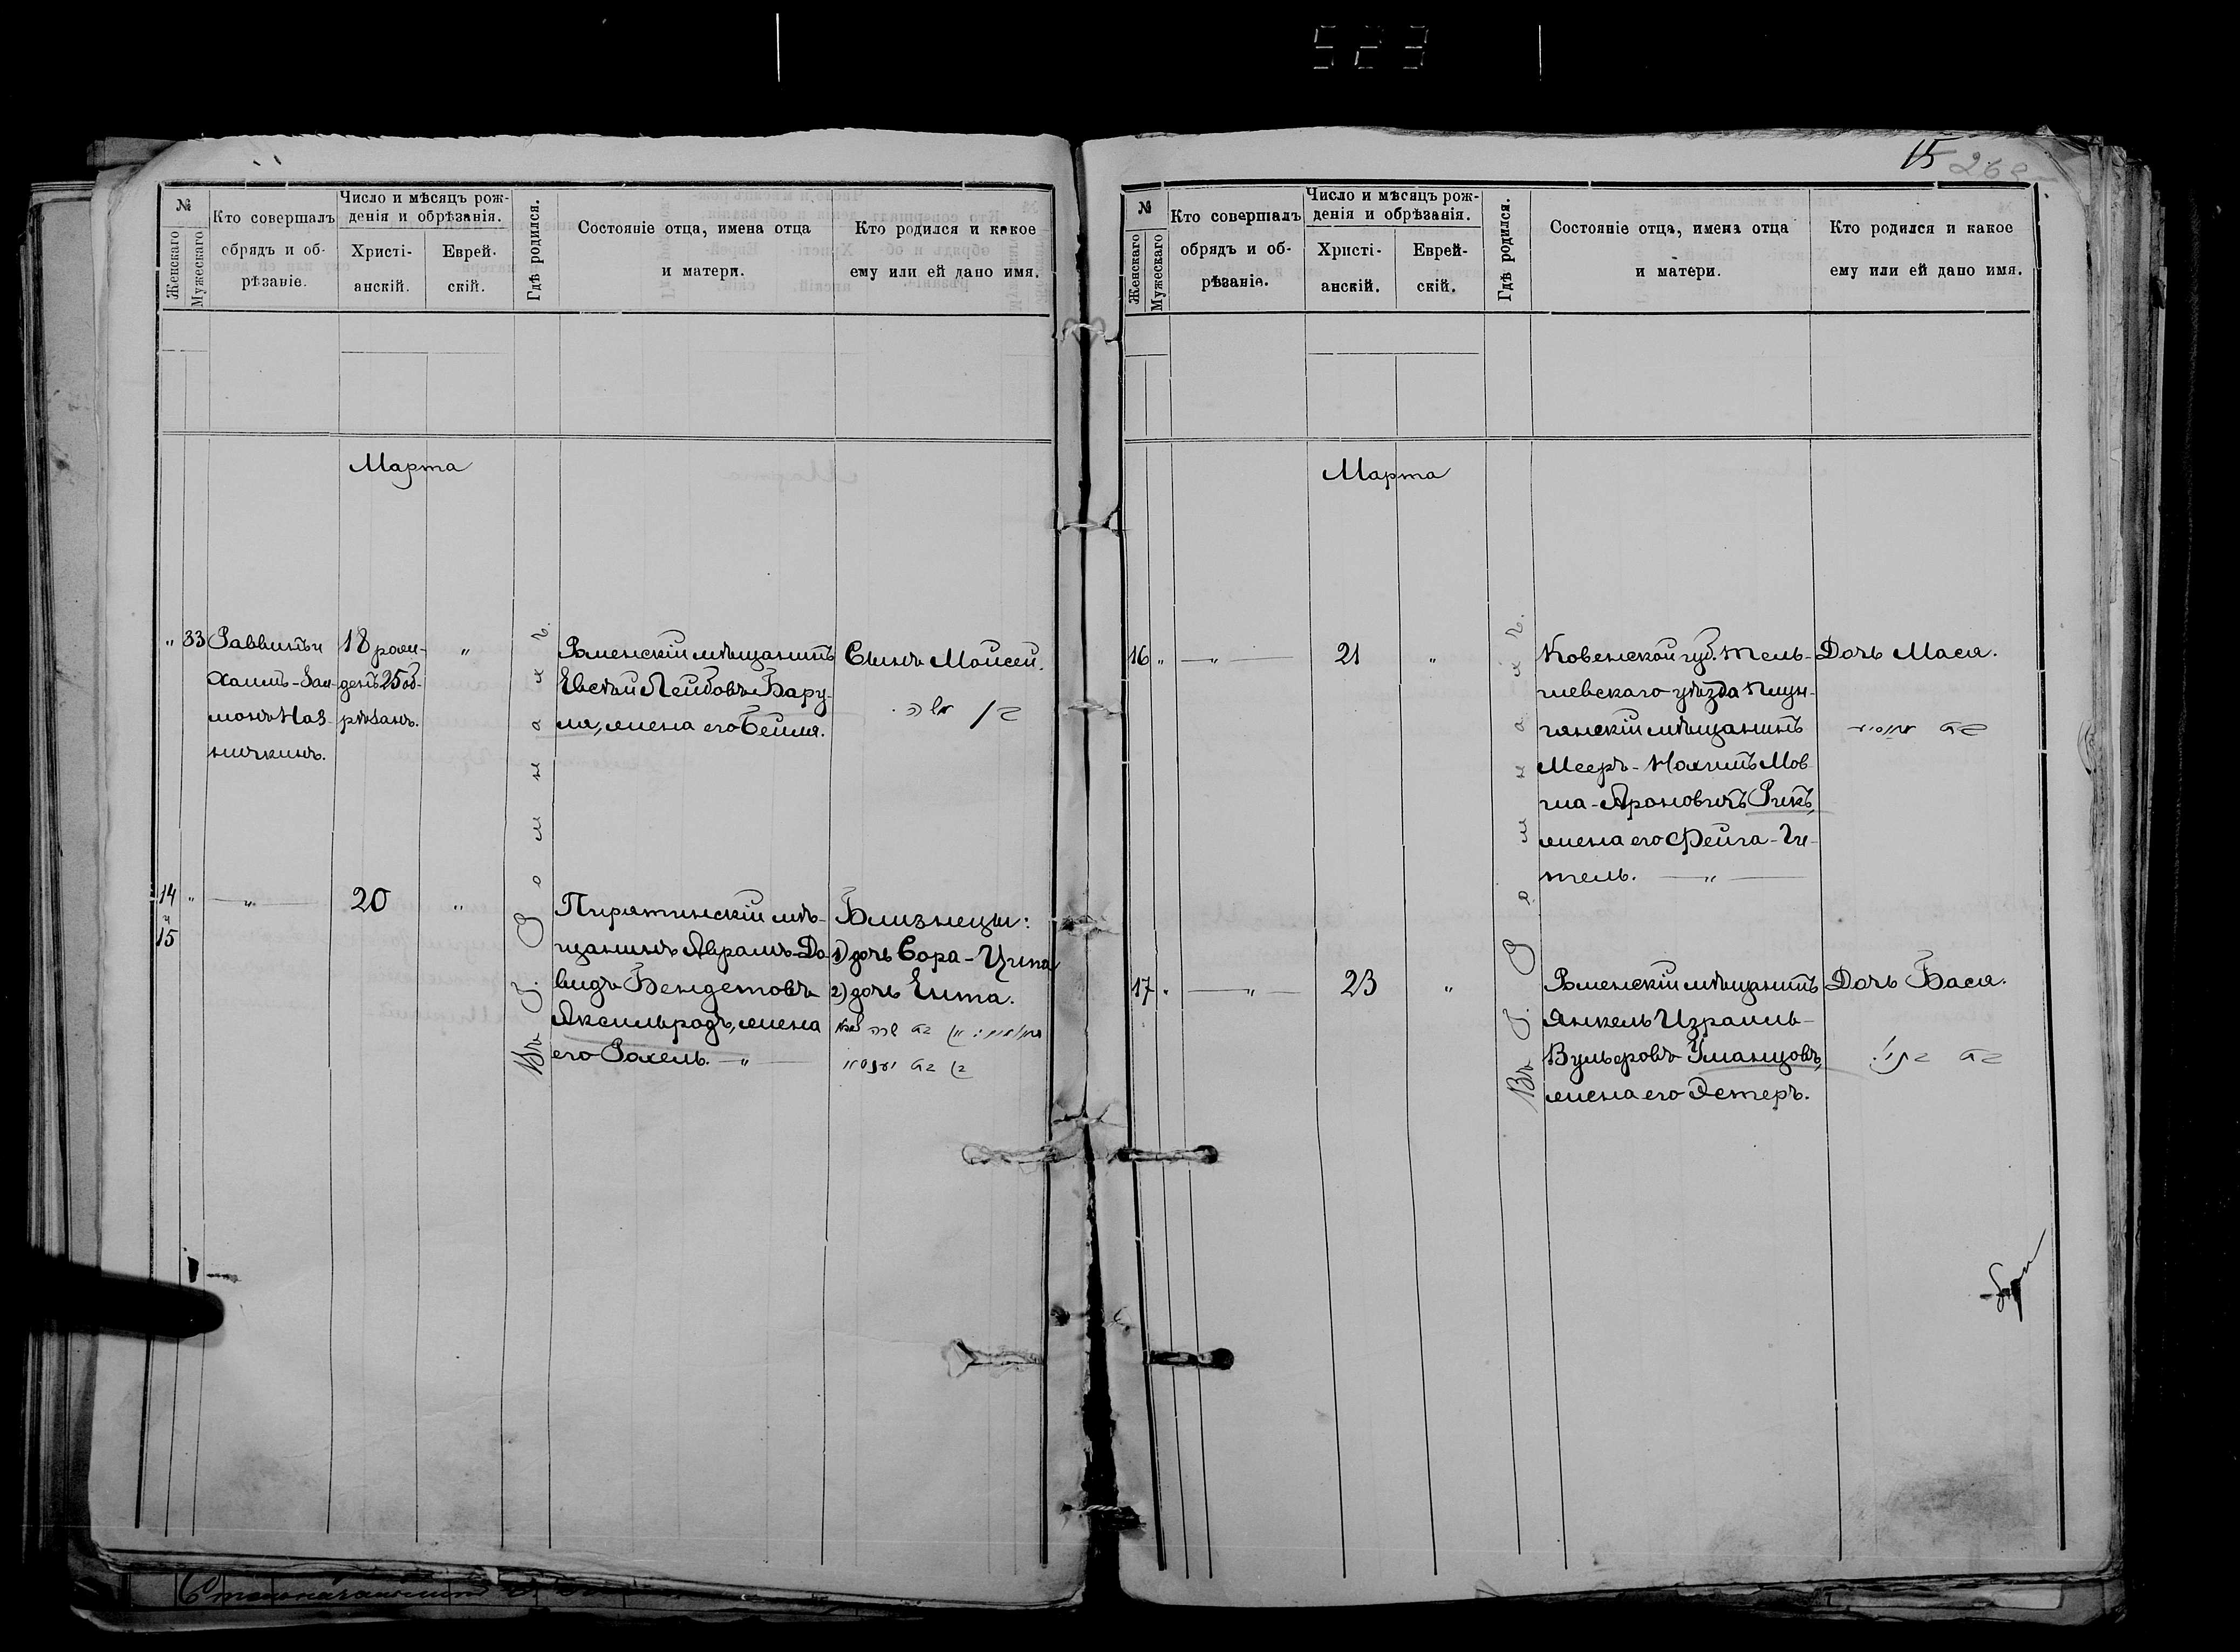 523
№
Женскаго
Мужескаго
Кто совершалъ
обрядъ и об-
рѣзаніе.
Число и мѣсяцъ рож-
денія и обрѣзанія.
Христі-
анскій.
Еврей-
скій.
Гдѣ родился.
Состояніе отца, имена отца
и матери.
Кто родился и какое
ему или ей дано имя.
Марта
" 33
Раввинъ
Хаимъ-Зал-
монъ Наз-
ничкинъ.
18 рож-
денъ 25 об-
рѣзанъ.
"
Въ г. Ромнахъ.
Роменскій мѣщанинъ
Евсѣй Лейбовъ Бару-
ля, жена его Бейля.
Сынъ Моисей.
בן משה.
14 "
и
15
— " —
20
"
Пирятинскій мѣ-
щанинъ Аврамъ-Да-
видъ Бендетовъ
Аксельродъ, жена
его Рохель. — " —
Близнецы:
1) дочь Сора-Ципа
2) дочь Ента.
15
№
Женскаго
Мужескаго
Кто совершалъ
обрядъ и об-
рѣзаніе.
Число и мѣсяцъ рож-
денія и обрѣзанія.
Христі-
анскій.
Еврей-
скій.
Гдѣ родился.
Состояніе отца, имена отца
и матери.
Кто родился и какое
ему или ей дано имя.
Марта
16 "
— " —
21
"
Въ г. Ромнахъ.
Ковенской губ. Тель-
шевскаго уѣзда Плун-
гянскій мѣщанинъ
Мееръ-Нохимъ Мов-
ша-Ароновичъ Рикъ,
жена его Фейга-Ги-
тель. — " —
Дочь Мася.
17 "
— " —
23
"
Роменскій мѣщанинъ
Янкель Израиль-
Вульфовъ Уманцовъ,
жена его Эстеръ.
Дочь Бася.